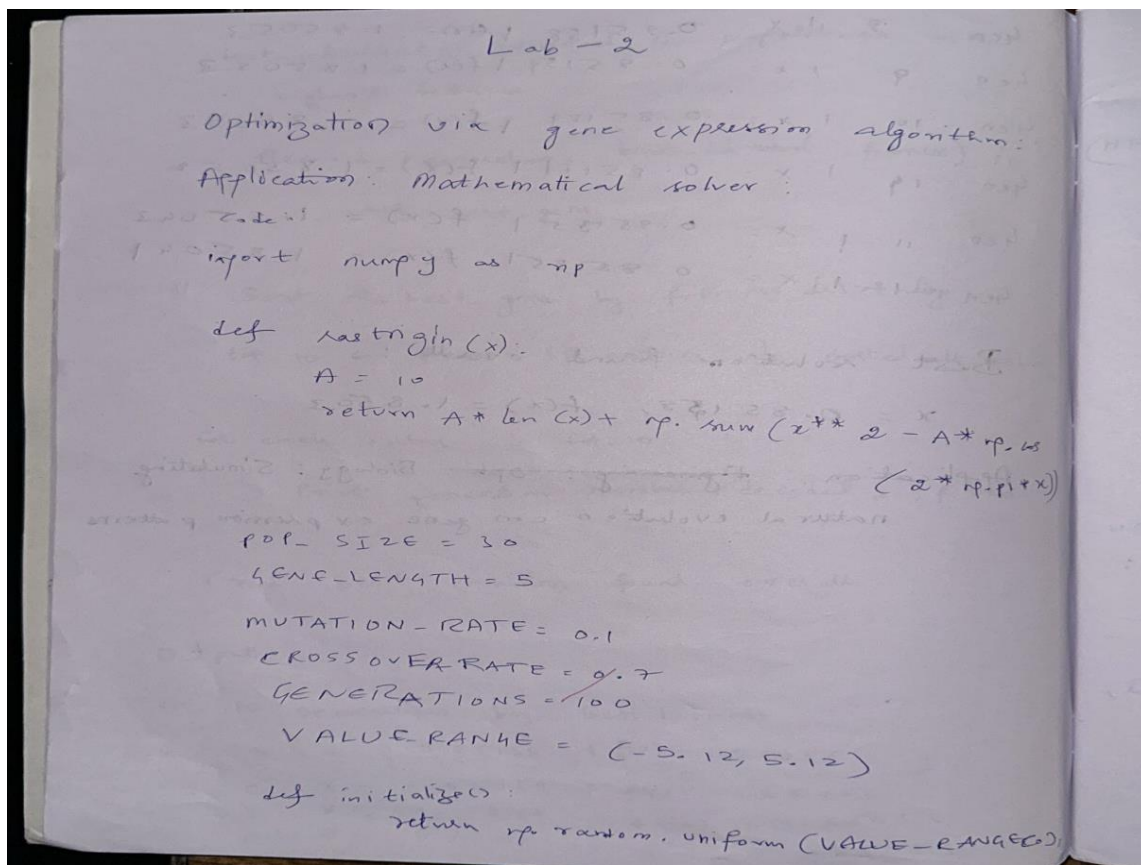 Lab - 2
Optimization via gene expression algorithm:
Application: Mathematical solver:
Code:
import numpy as np
def rastrigin(x):
A = 10
return A * len(x) + np.sum(x** 2 - A* np.cos
(2* np.pi*x))
POP_SIZE = 30
GENE_LENGTH = 5
MUTATION_RATE = 0.1
CROSSOVER_RATE = 0.7
GENERATIONS = 100
VALUE_RANGE = (-5.12, 5.12)
def initialize():
return np.random.uniform(VALUE_RANGE[0],